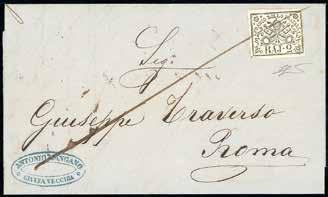 BAJ. 2
Sig.
Giuseppe Traverso
Roma
ANTONIO
CIVITA VECCHIA